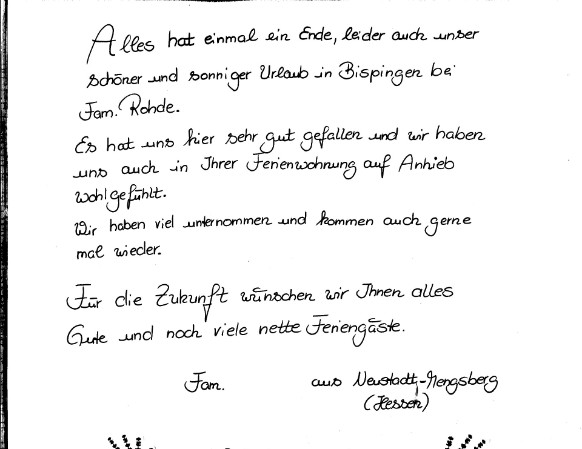 Alles hat einmal ein Ende, leider auch unser
schöner und sonniger Urlaub in Bispingen bei
Fam. Rohde.
Es hat uns hier sehr gut gefallen und wir haben
uns auch in Ihrer Ferienwohnung auf Anhieb
wohlgefühlt.
Wir haben viel unternommen und kommen auch gerne
mal wieder.
Für die Zukunft wünschen wir Ihnen alles
Gute und noch viele nette Feriengäste.
Fam. aus Neustadt-Mengsberg
(Hessen)